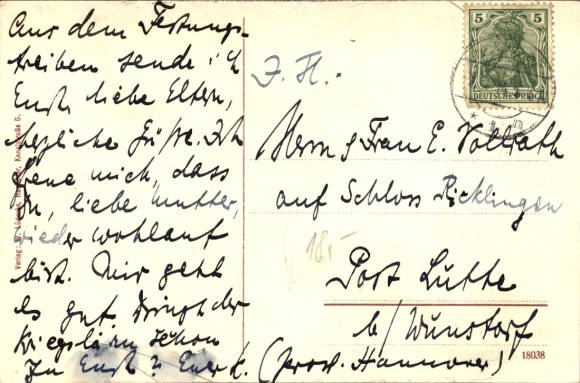 Aus dem Festungs-
treiben sende ich
Euch, liebe Eltern,
herzliche Grüße. Ich
freue mich, dass
Du, liebe Mutter,
wieder wohlauf
bist. Mir geht
es gut. Dringt der
Kriegslärm schon
zu Euch? Euer K.
Z. H.
Herrn & Frau E. Vollrath
auf Schloss Ricklingen
Post Lutte
b/ Wunstorf
(prov. Hannover)
18.-
5 5
DEUTSCHES REICH
Verlag:
18038